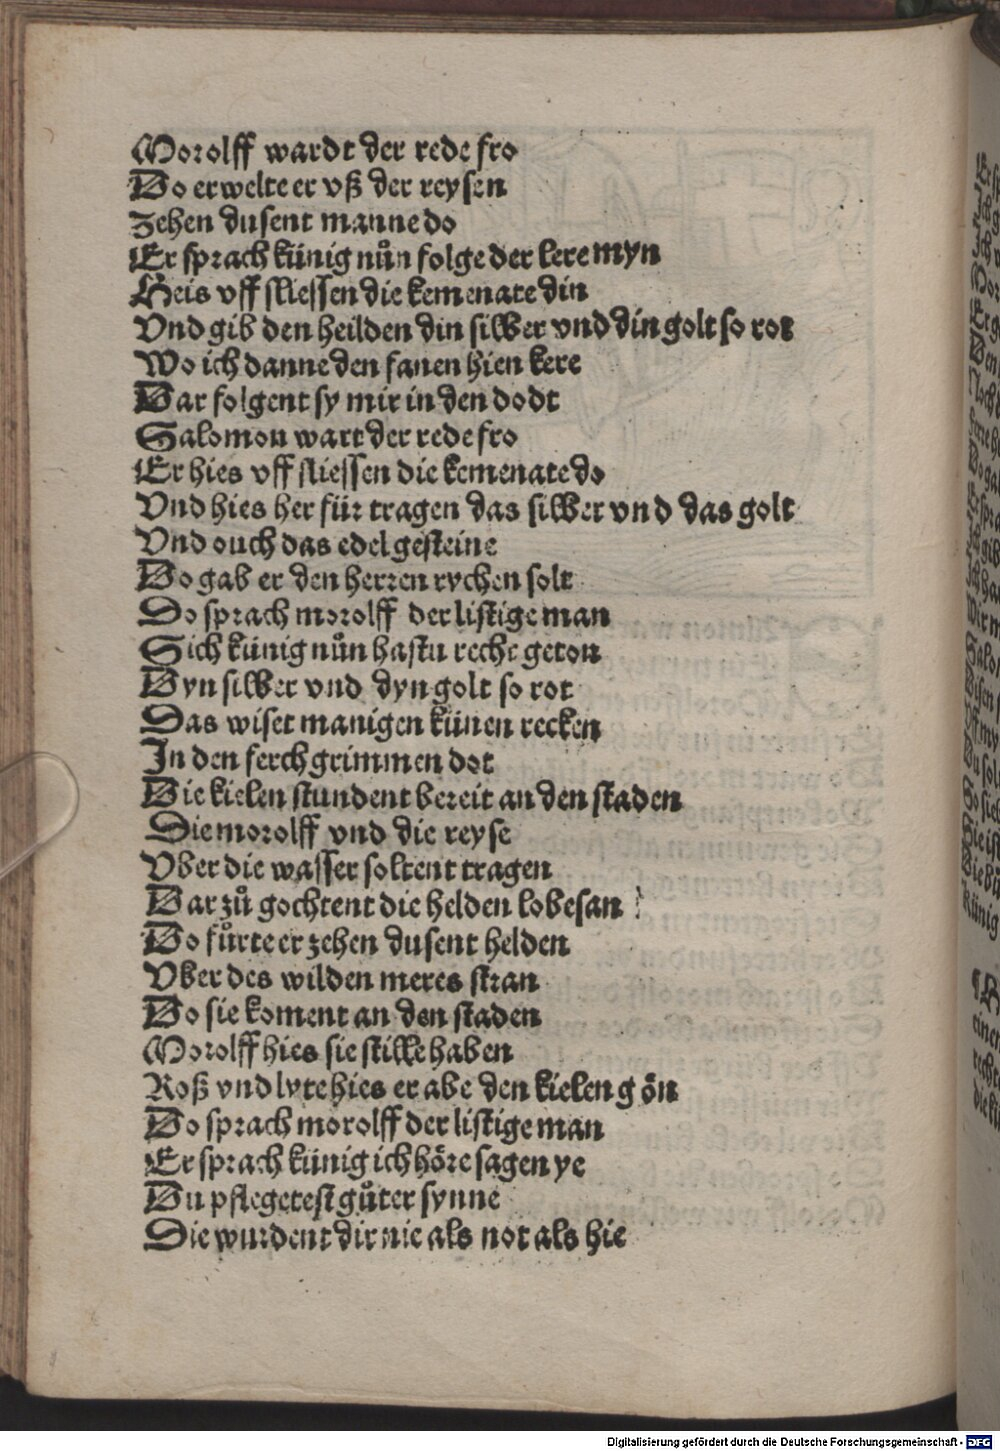 Morolff wardt der rede fro
Do erwelte er vß der reysen
zehen dusent manne do
Er sprach künig nůn folge der lere myn
Heis vff sliessen die kemenate din
Vnd gib den heilden din silber vnd din golt so rot
Wo ich danne den fanen hien kere
Dar folgent sy mir in den dodt
Salomon wart der rede fro
Er hies vff sliessen die kemenate do
Vnd hies her für tragen das silber vnd das golt
Vnd ouch das edel gesteine
Do gab er den herren rychen solt
Do sprach morolff der listige man
Sich künig nůn hastu reche geton
Dyn silber vnd dyn golt so rot
Das wiset manigen künen recken
In den ferch grimmen dot
Die kielen stundent bereit an den staden
Die morolff vnd die reyse
Vber die wasser soltent tragen
Dar zů gochtent die helden lobesan
Do fůrte er zehen dusent helden
Vber des wilden meres stran
Do sie koment an den staden
Morolff hies sie stille haben
Roß vnd lvte hies er abe den kielen gön
Do sprach morolff der listige man
Er sprach künig ich höre sagen ye
Du pflegetest gůter synne
Die wurdent dir nie als not als hie
Digitalisierung gefördert durch die Deutsche Forschungsgemeinschaft - DFG